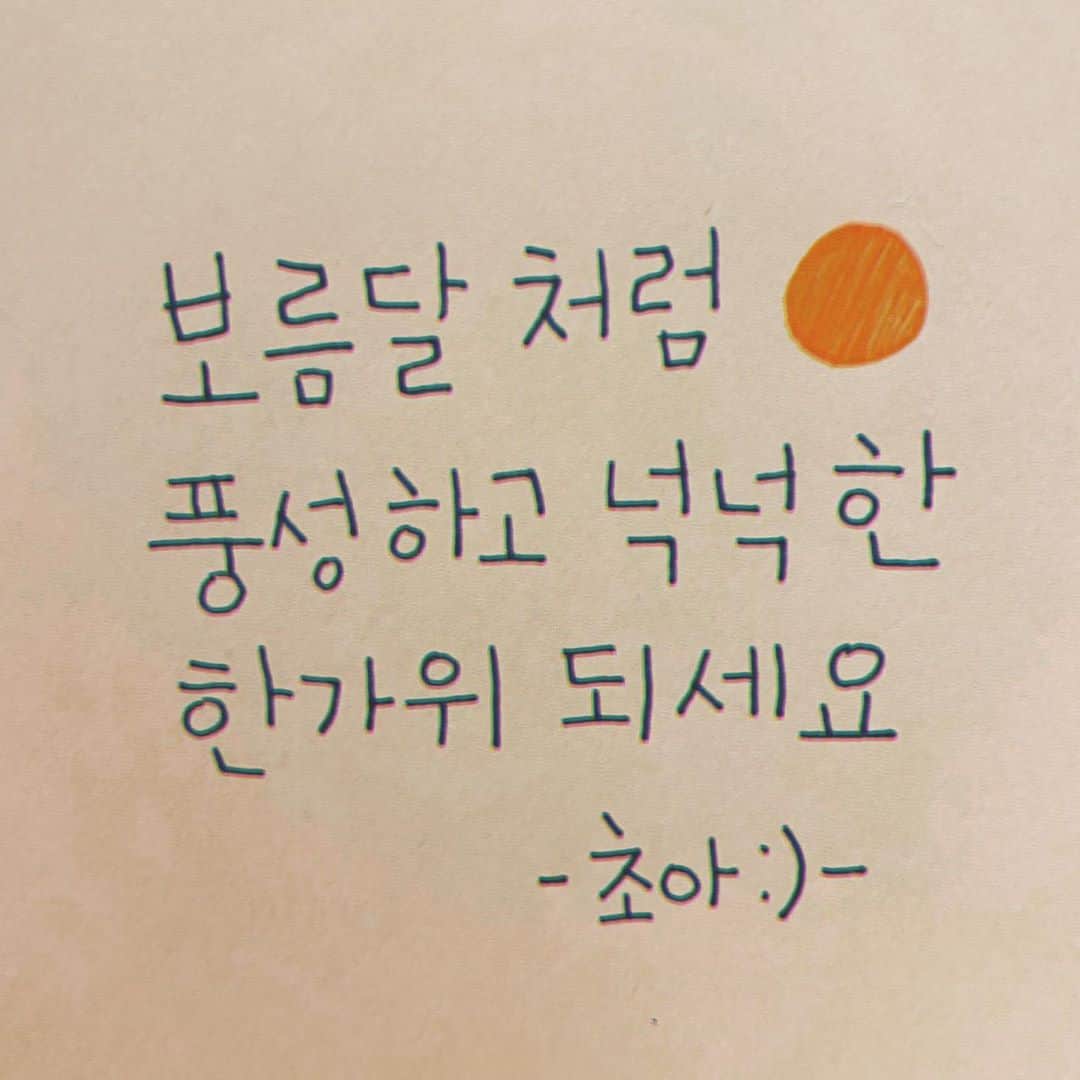 보름달 처럼
풍성하고 넉넉한
한가위 되세요
-초아:)-